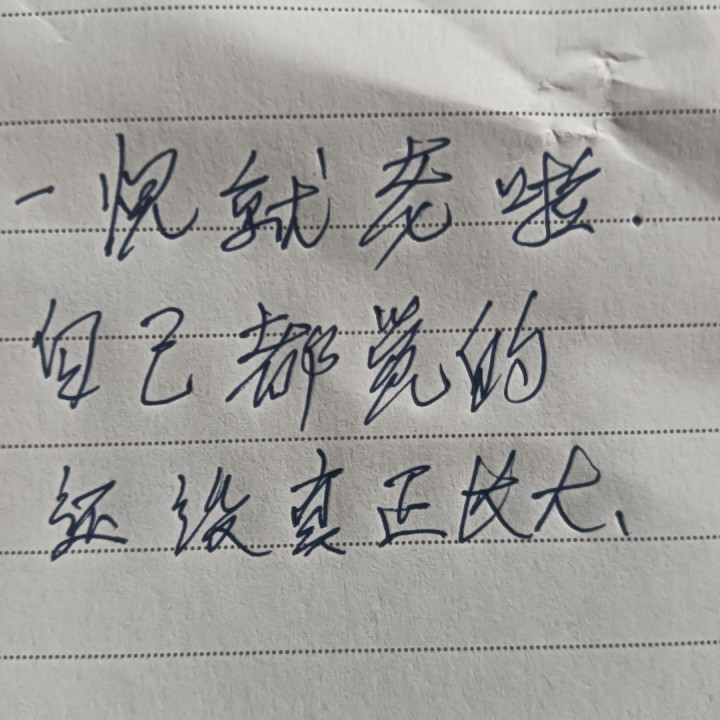 一愰就老啦.
自己都觉的
还没真正长大、